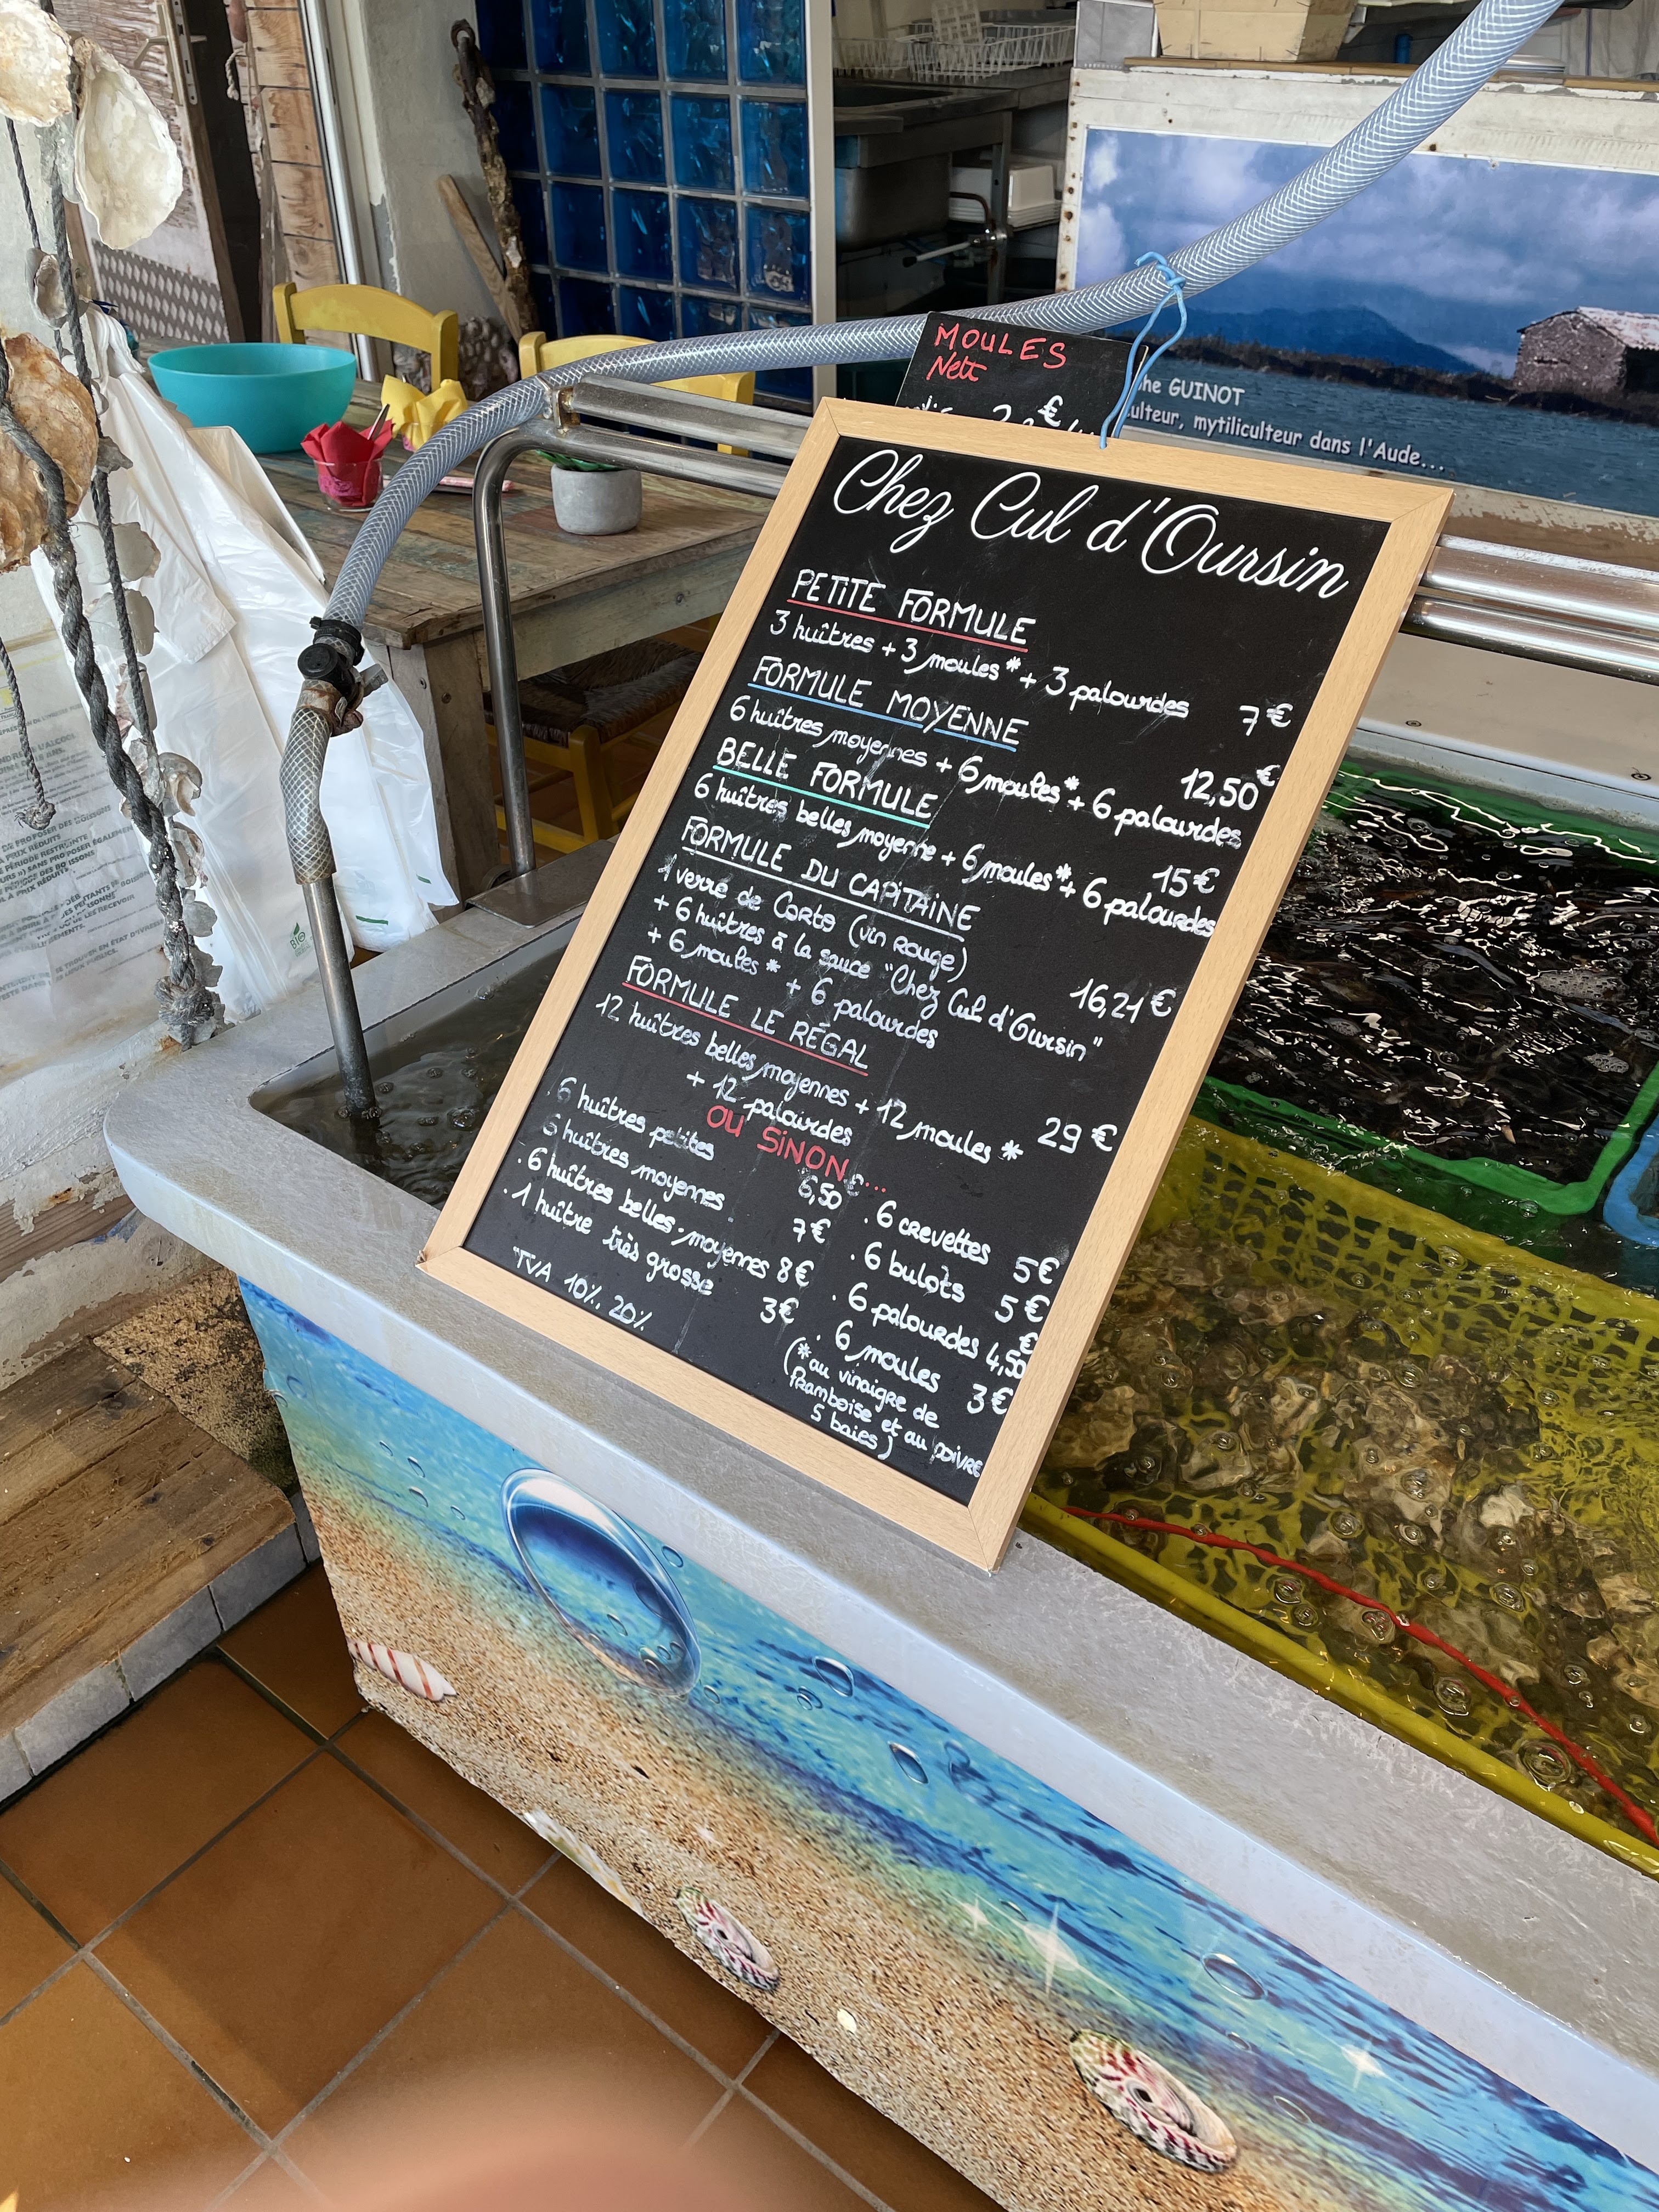 MOULES
Nett
€
GUINOT
mytiliculteur dans l'Aude...
Chez Cul d'Oursin
PETITE FORMULE
3 huîtres + 3 moules* + 3 palourdes 7€
FORMULE MOYENNE
6 huîtres moyennes + 6 moules* + 6 palourdes 12,50€
BELLE FORMULE
6 huîtres belles moyenne + 6 moules* + 6 palourdes 15€
FORMULE DU CAPITAINE
1 verre de Corto (vin rouge)
+ 6 huîtres à la sauce "Chez Cul d'Oursin"
+ 6 moules* + 6 palourdes 16,21€
FORMULE LE RÉGAL
12 huîtres belles moyennes + 12 moules* 29€
+ 12 palourdes
OU SINON...
6 huîtres petites 6,50€
6 huîtres moyennes 7€
. 6 huîtres belles moyennes 8€
. 1 huître très grosse 3€
TVA 10%, 20%
. 6 crevettes 5€
. 6 bulots 5€
. 6 palourdes 4,50€
. 6 moules 3€
(*au vinaigre de
framboise et au poivre
5 baies)
BIO